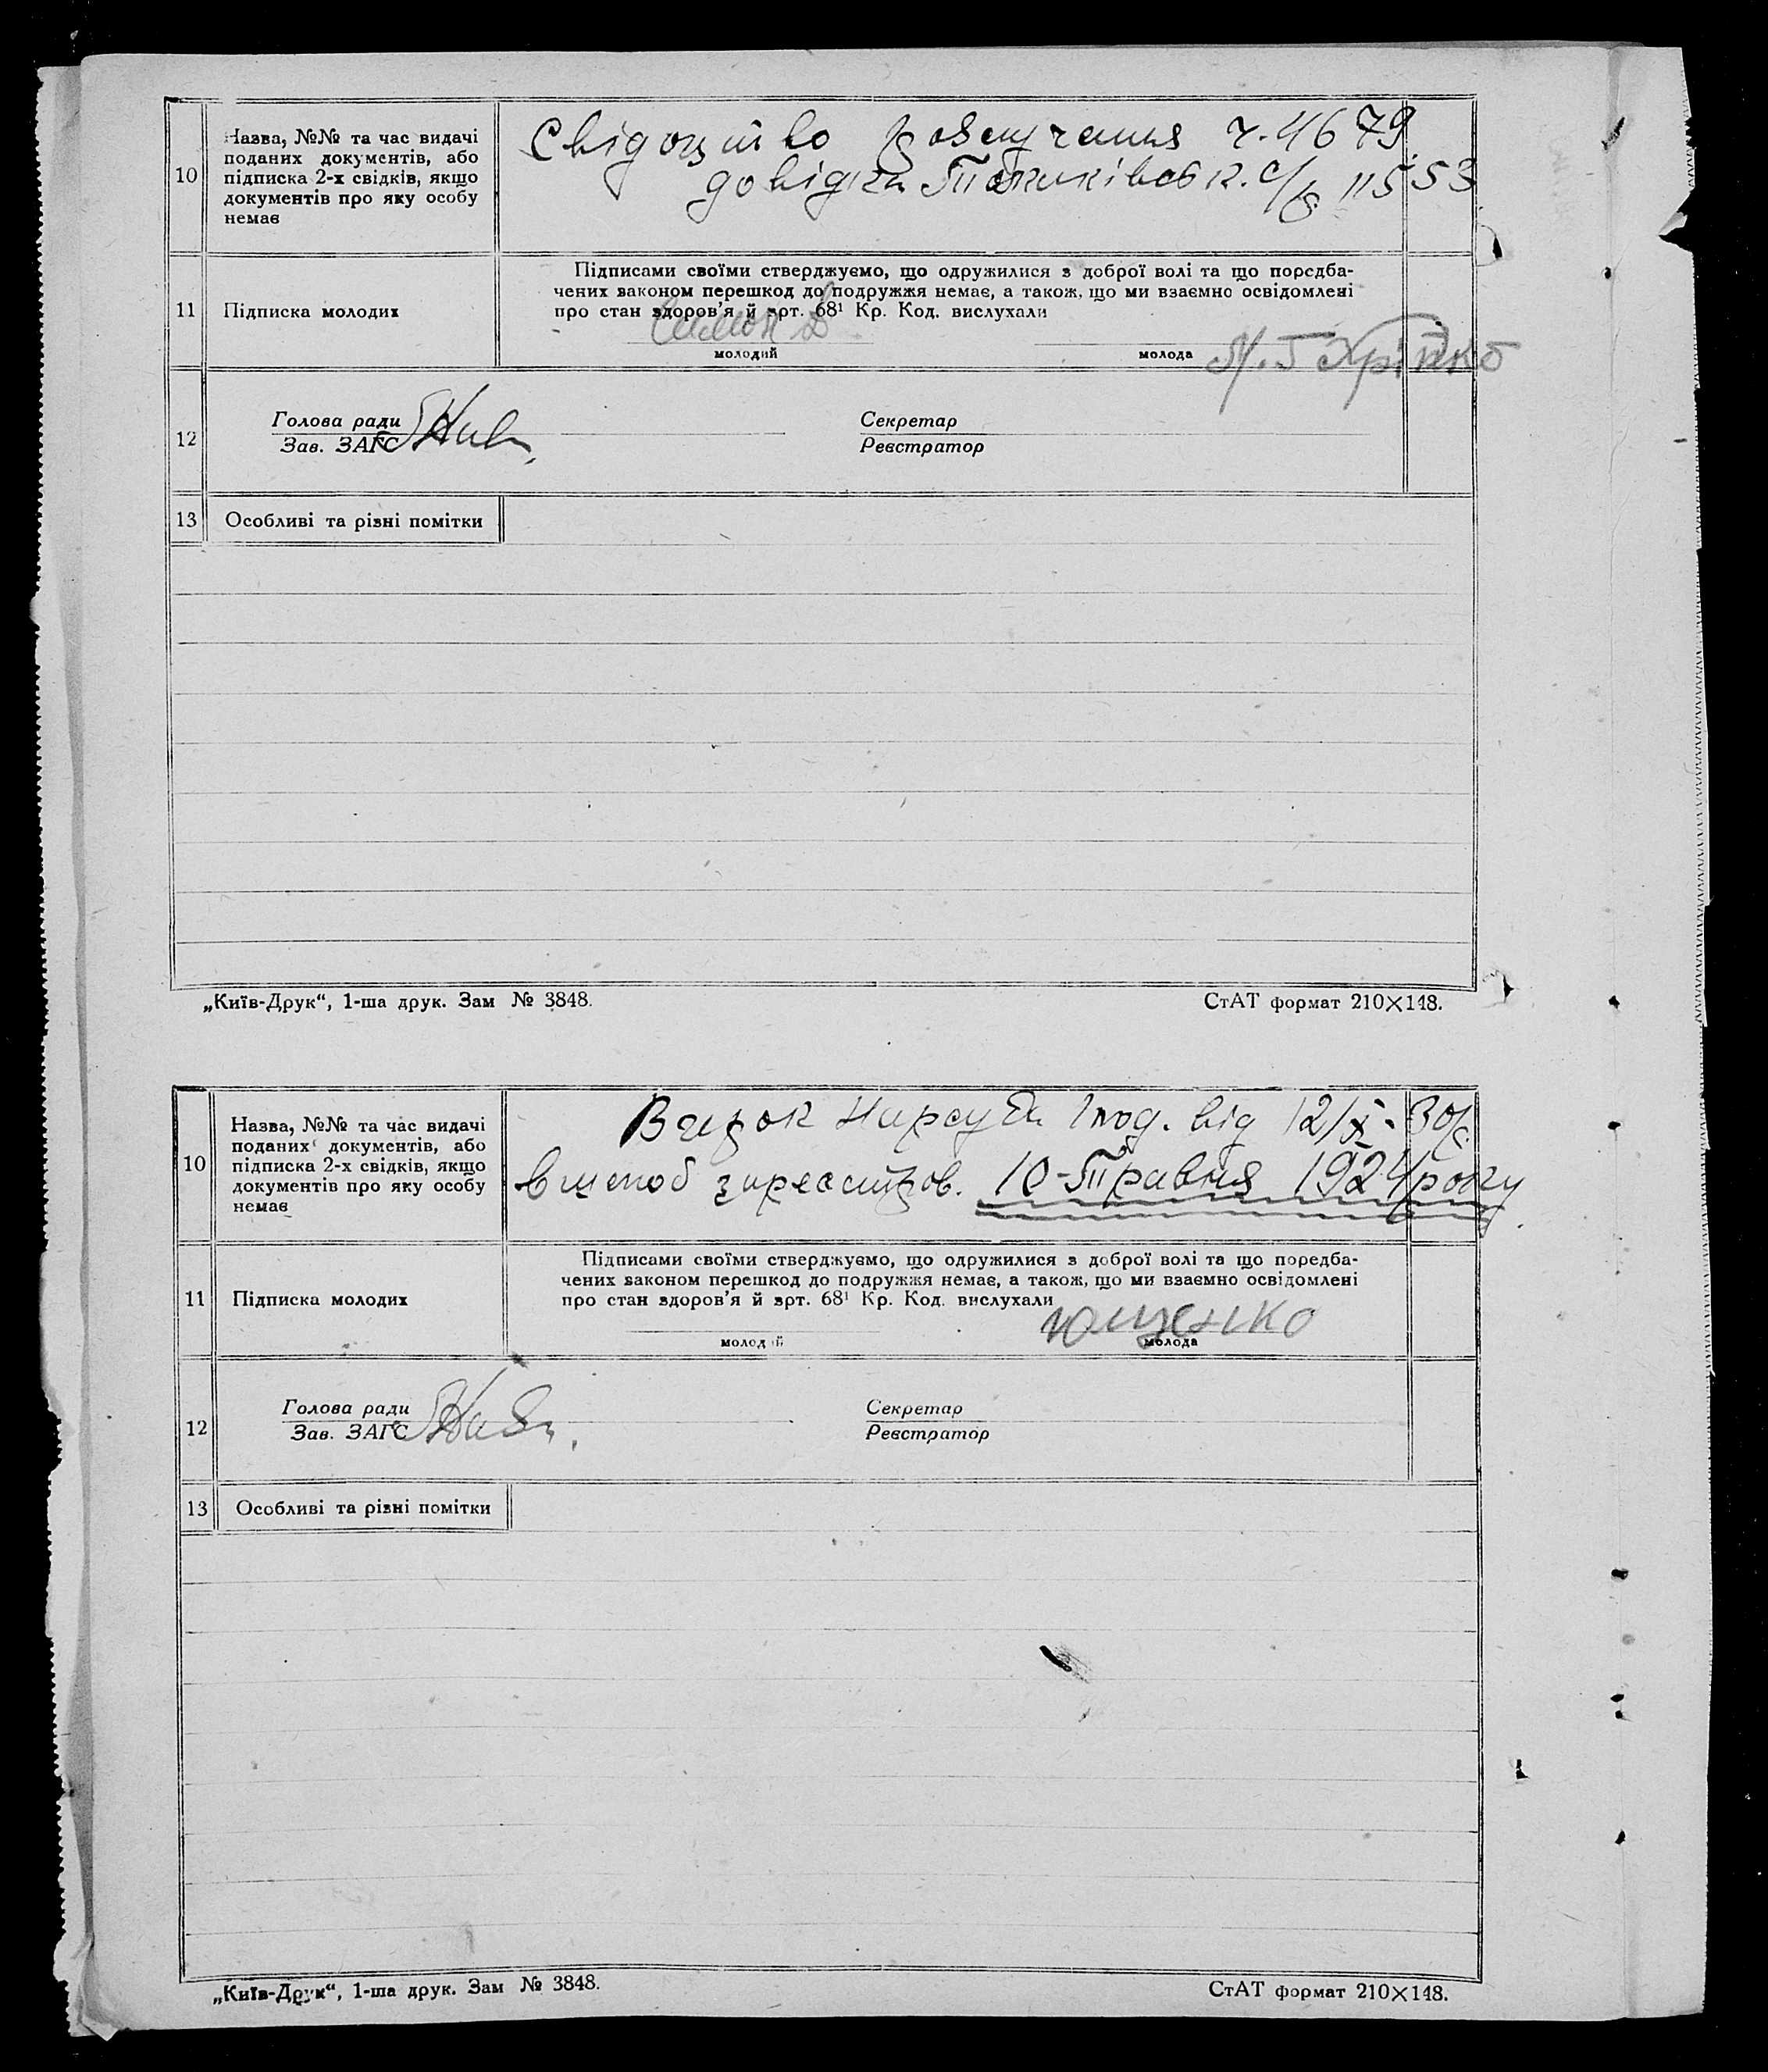 10
Назва, №№ та час видачі
поданих документів, або
підписка 2-х свідків, якщо
документів про яку особу
немає
Свідоцтво розлучення ч. 4679
довідка с/р 11553
11
Підписка молодих
Підписами своїми стверджуємо, що одружилися з доброї волі та що поредба-
чених законом перешкод до подружжя немає, а також, що ми взаємно освідомлені
про стан здоров'я й арт. 68¹ Кр. Код. вислухали
молодий
молода
12
Голова ради
Зав. ЗАГС
Секретар
Реєстратор
13
Особливі та різні помітки
„Київ-Друк“, 1-ша друк. Зам № 3848.
СтАТ формат 210×148.
10
Назва, №№ та час видачі
поданих документів, або
підписка 2-х свідків, якщо
документів про яку особу
немає
Вирок Нарсуда від 12/X-30р.
в шлюб зареєстров. 10-Травня 1924 року
11
Підписка молодих
Підписами своїми стверджуємо, що одружилися з доброї волі та що поредба-
чених законом перешкод до подружжя немає, а також, що ми взаємно освідомлені
про стан здоров'я й арт. 68¹ Кр. Код. вислухали
Ющенко
молодий
молода
12
Голова ради
Зав. ЗАГС
Секретар
Реєстратор
13
Особливі та різні помітки
„Київ-Друк“, 1-ша друк. Зам № 3848.
СтАТ формат 210×148.